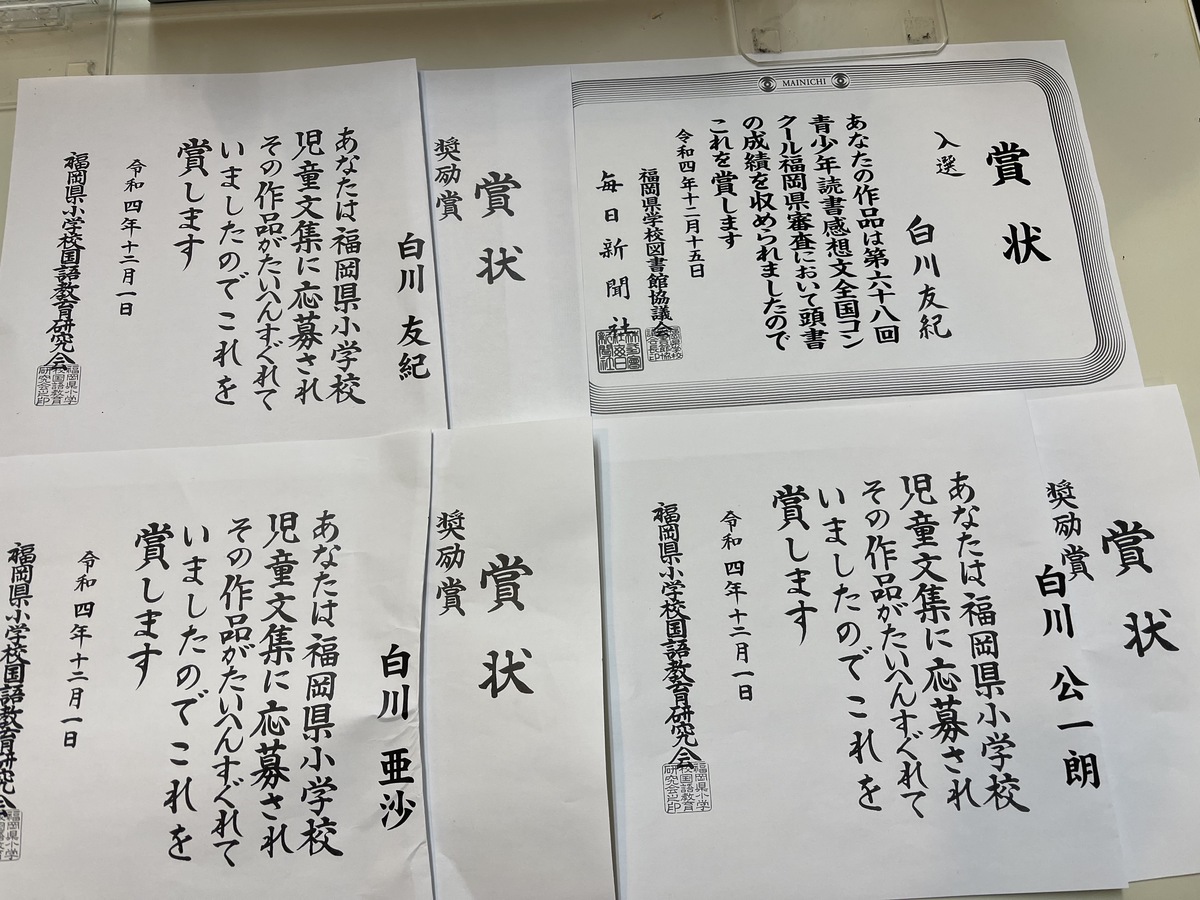 賞状
奨励賞
白川 友紀
あなたは福岡県小学校
児童文集に応募され
その作品がたいへんすぐれて
いましたのでこれを
賞します
令和四年十二月一日
福岡県小学校国語教育研究会
福岡県小学
校国語教育
研究会之印
MAINICHI
賞状
入選
白川友紀
あなたの作品は第六十八回
青少年読書感想文全国コン
クール福岡県審査において頭書
の成績を収められましたので
これを賞します
令和四年十二月十五日
福岡県学校図書館協議会
毎日新聞社
賞状
奨励賞
白川 亜沙
あなたは福岡県小学校
児童文集に応募され
その作品がたいへんすぐれて
いましたのでこれを
賞します
令和四年十二月一日
福岡県小学校国語教育研究会
賞状
奨励賞
白川 公一朗
あなたは福岡県小学校
児童文集に応募され
その作品がたいへんすぐれて
いましたのでこれを
賞します
令和四年十二月一日
福岡県小学校国語教育研究会
福岡県小学
校国語教育
研究会之印